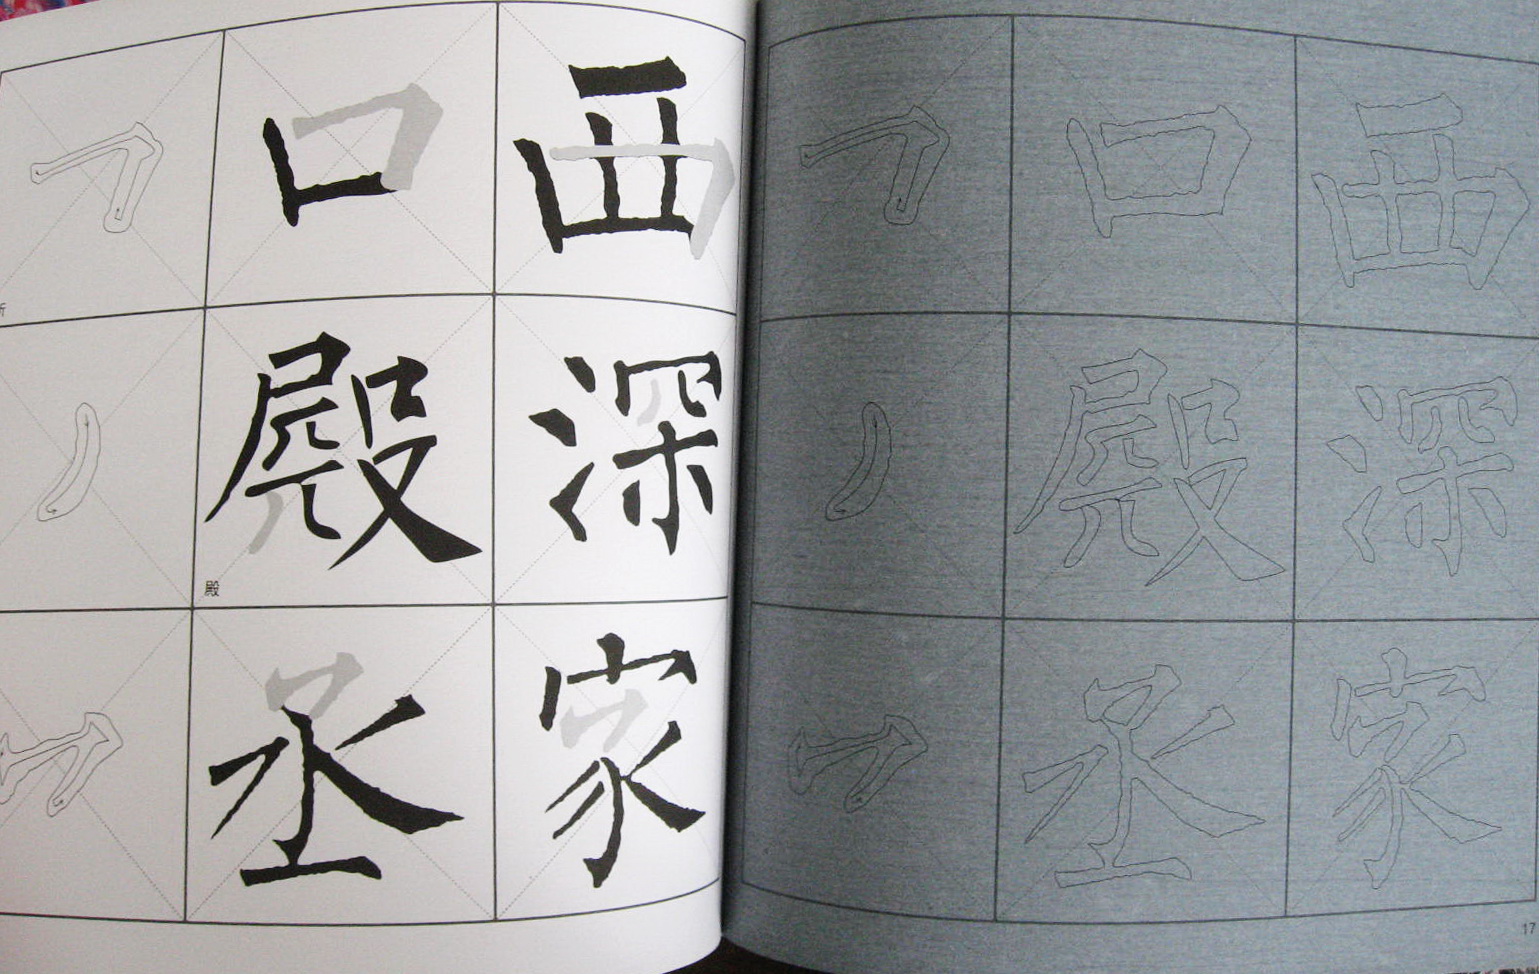 口 西
殿 深
殿
丞 家
口 西
殿 深
丞 家
17